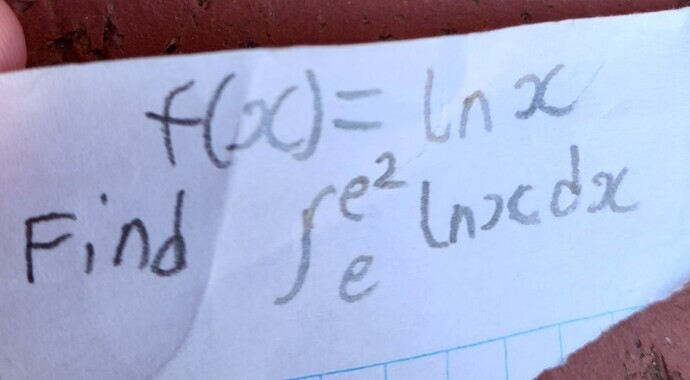 f(x) = ln x
Find ∫ₑ^e² ln x dx